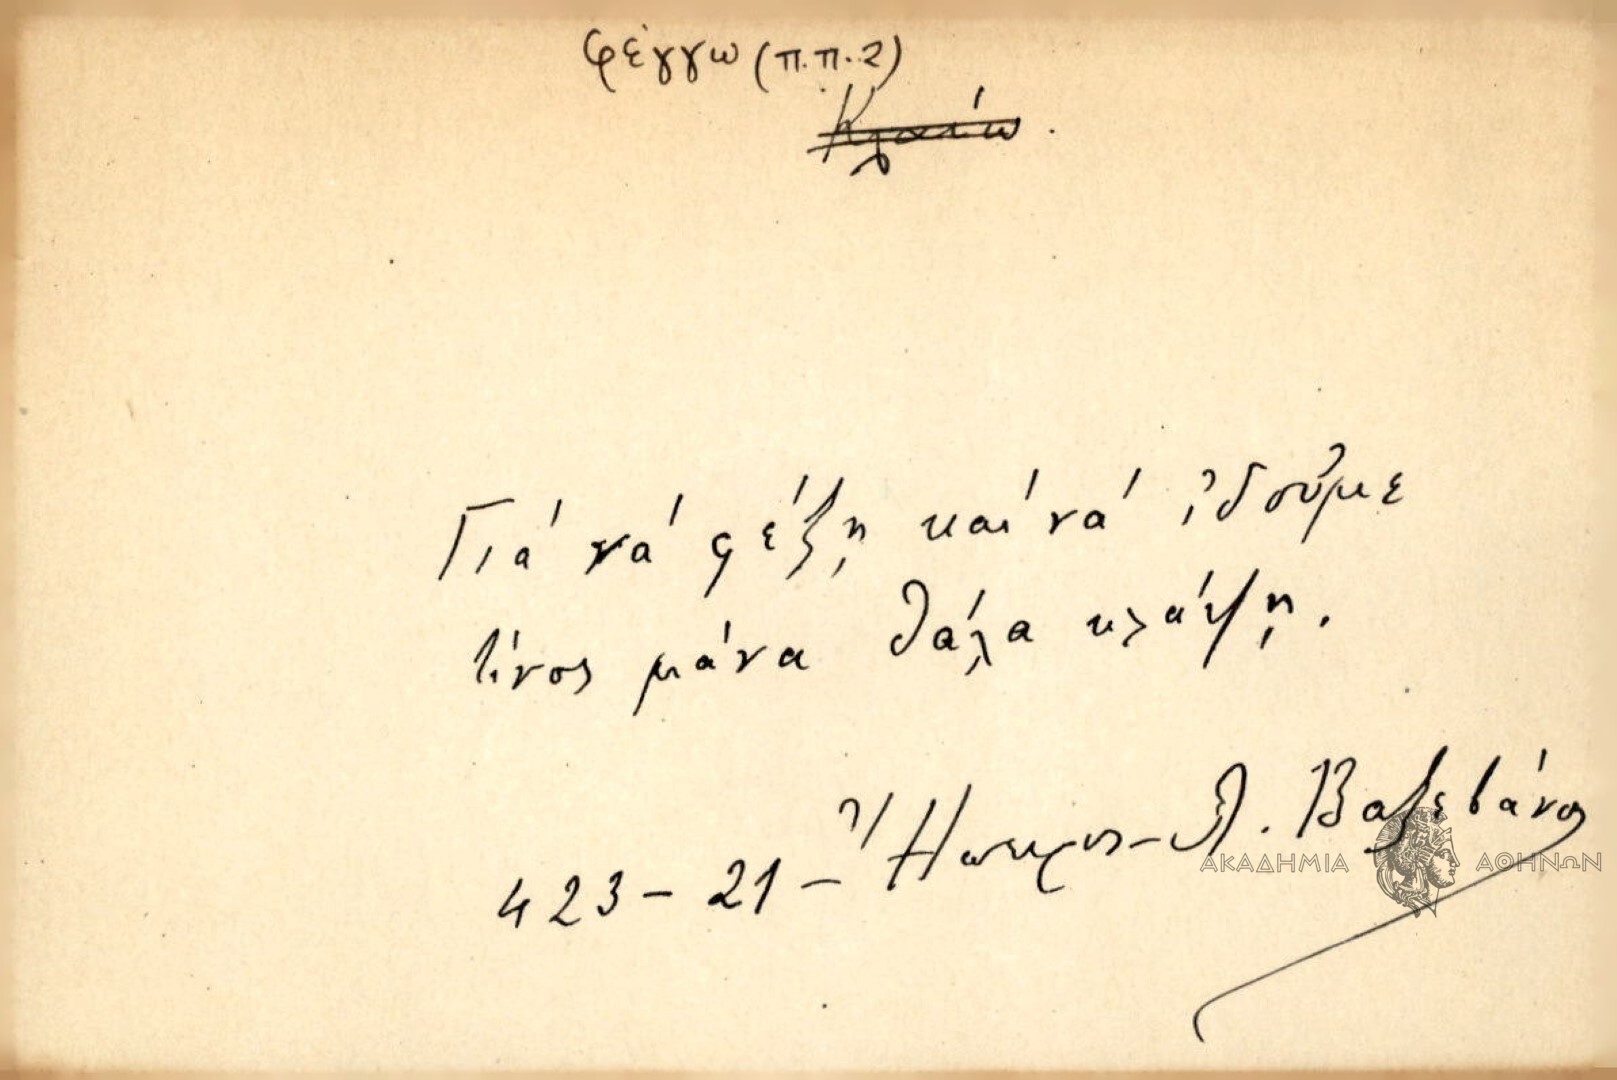 φέγγω (π.π.2)
Κλαίω.
Γιά νά φέξῃ καί νά ἰδοῦμε
τίνος μάνα θάλα κλάψῃ.
423 – 21 – Ἤπειρος – Λ. Βαζετάνος
ΑΚΑΔΗΜΙΑ ΑΘΗΝΩΝ